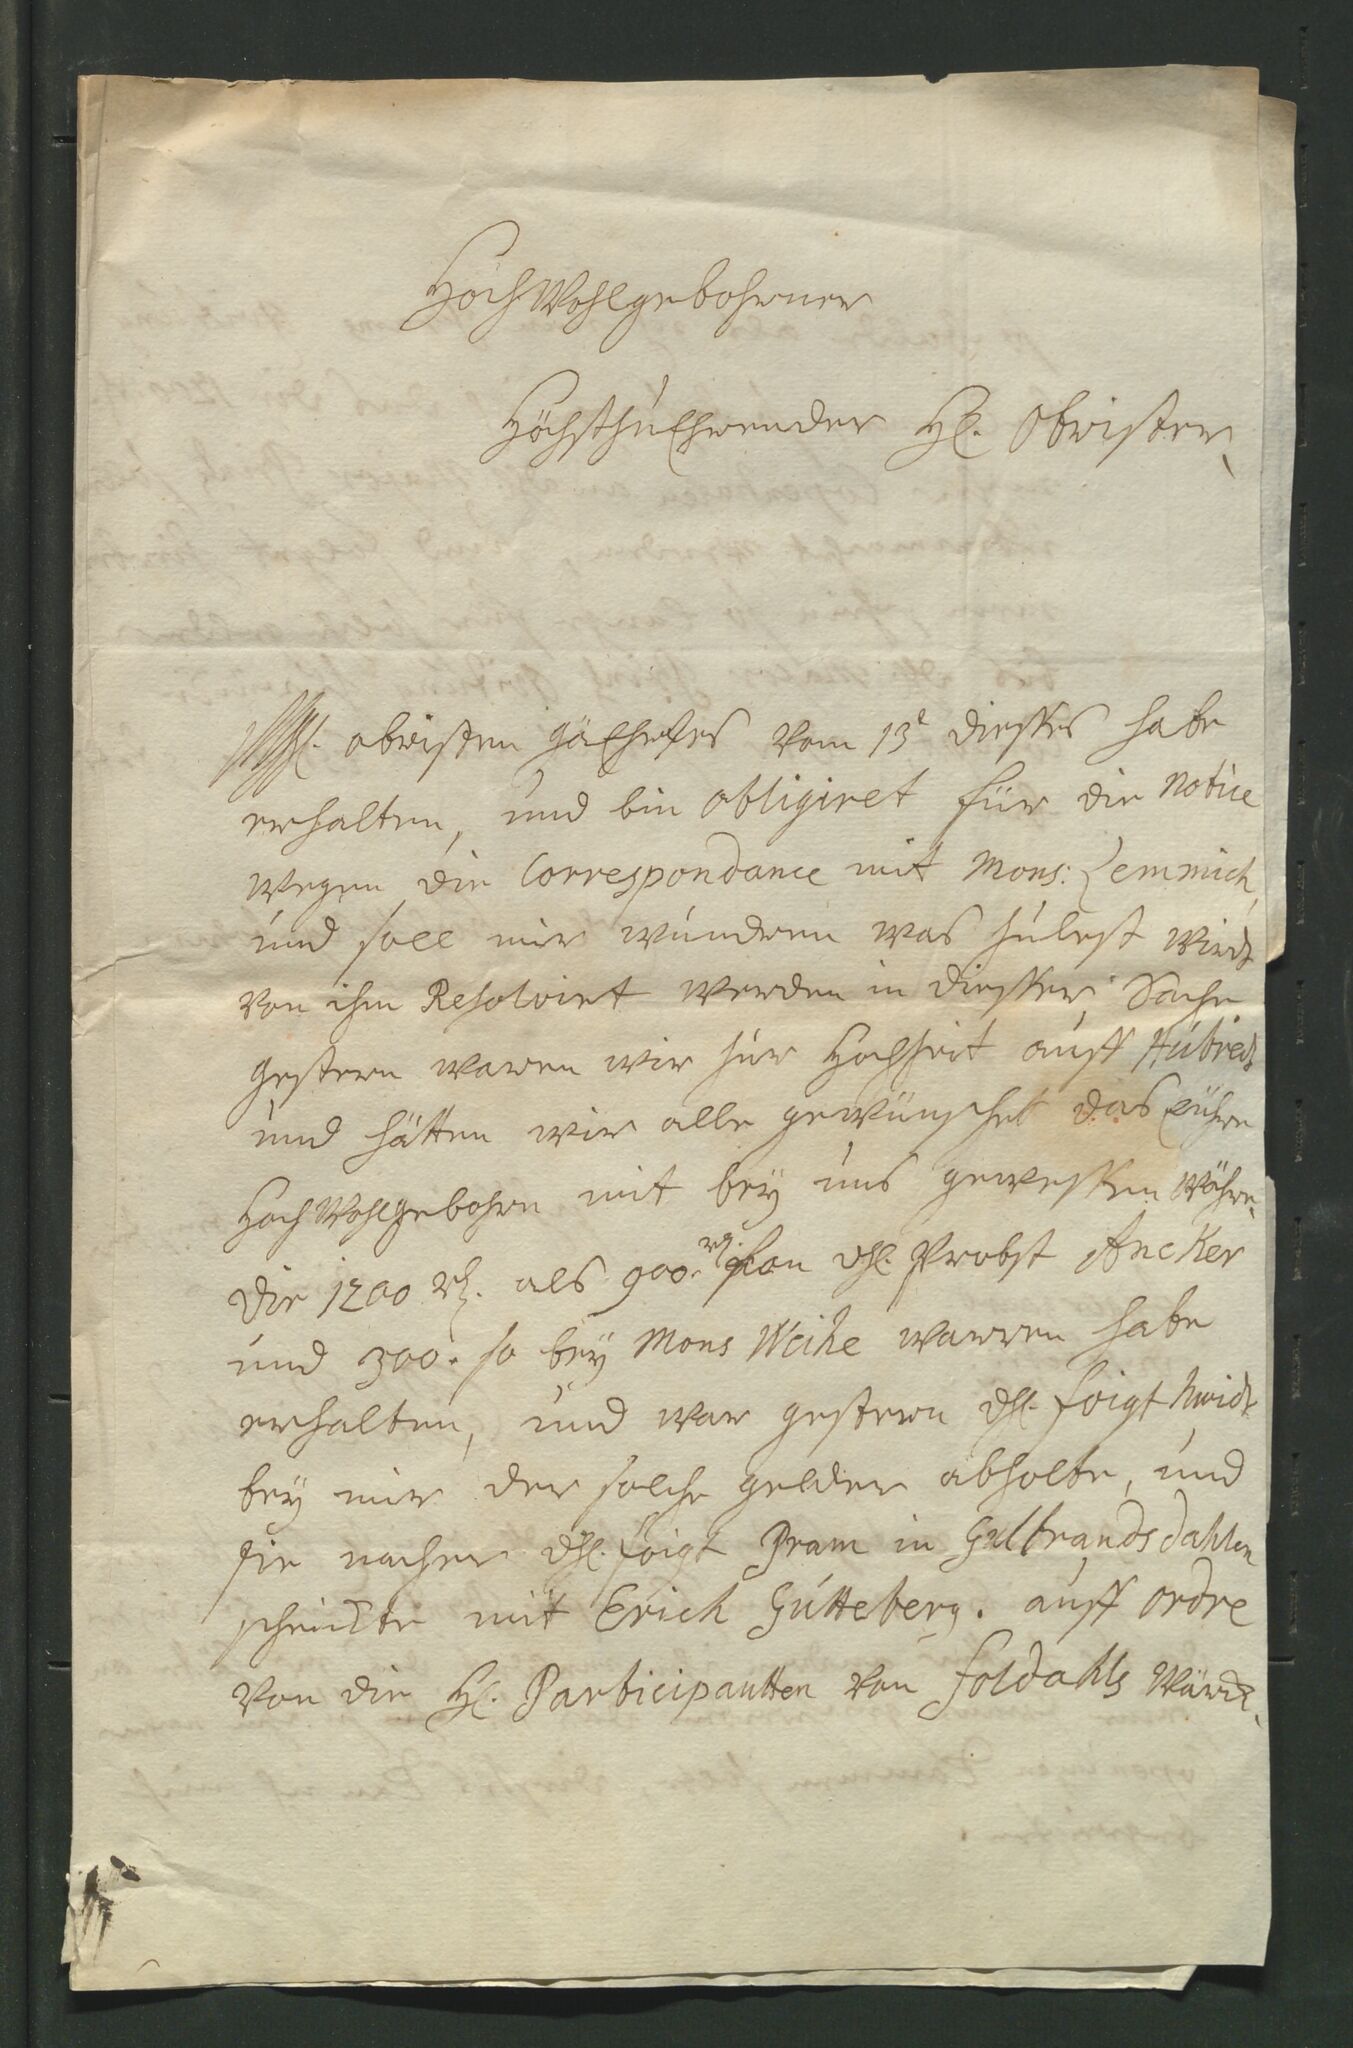 HochWohlgebohrner
Höchsthuehrender H. Obrister,
H. obristen gäehrtes vom 13t diesses habe
erhalten, und bin obligiret für die Notice
wegen die Correspondance mit Mons: Lemmich,
und soll mir wundren was zulest wirdt
von ihm Resolvirt werden in diesser Sache
gestern waren wir zur Hochzeit auff Hübred
und hätten wir alle gewünschet das Eühre
HochWohlgebohrn mit bey uns gewessen währe,
die 1200 rh. als 900 rh. von dhl. Probst Ancker
und 300. so bey Mons Weihe warren habe
erhalten, und war gestern dhl. foigt
bey mir der solche gelder abholte, und
sie nacher dhl. foigt Pram in Gulbrandsdahlen
schickte mit Erich Gutteberg. auff ordre
von die H. Participantten von foldahls Wärck,